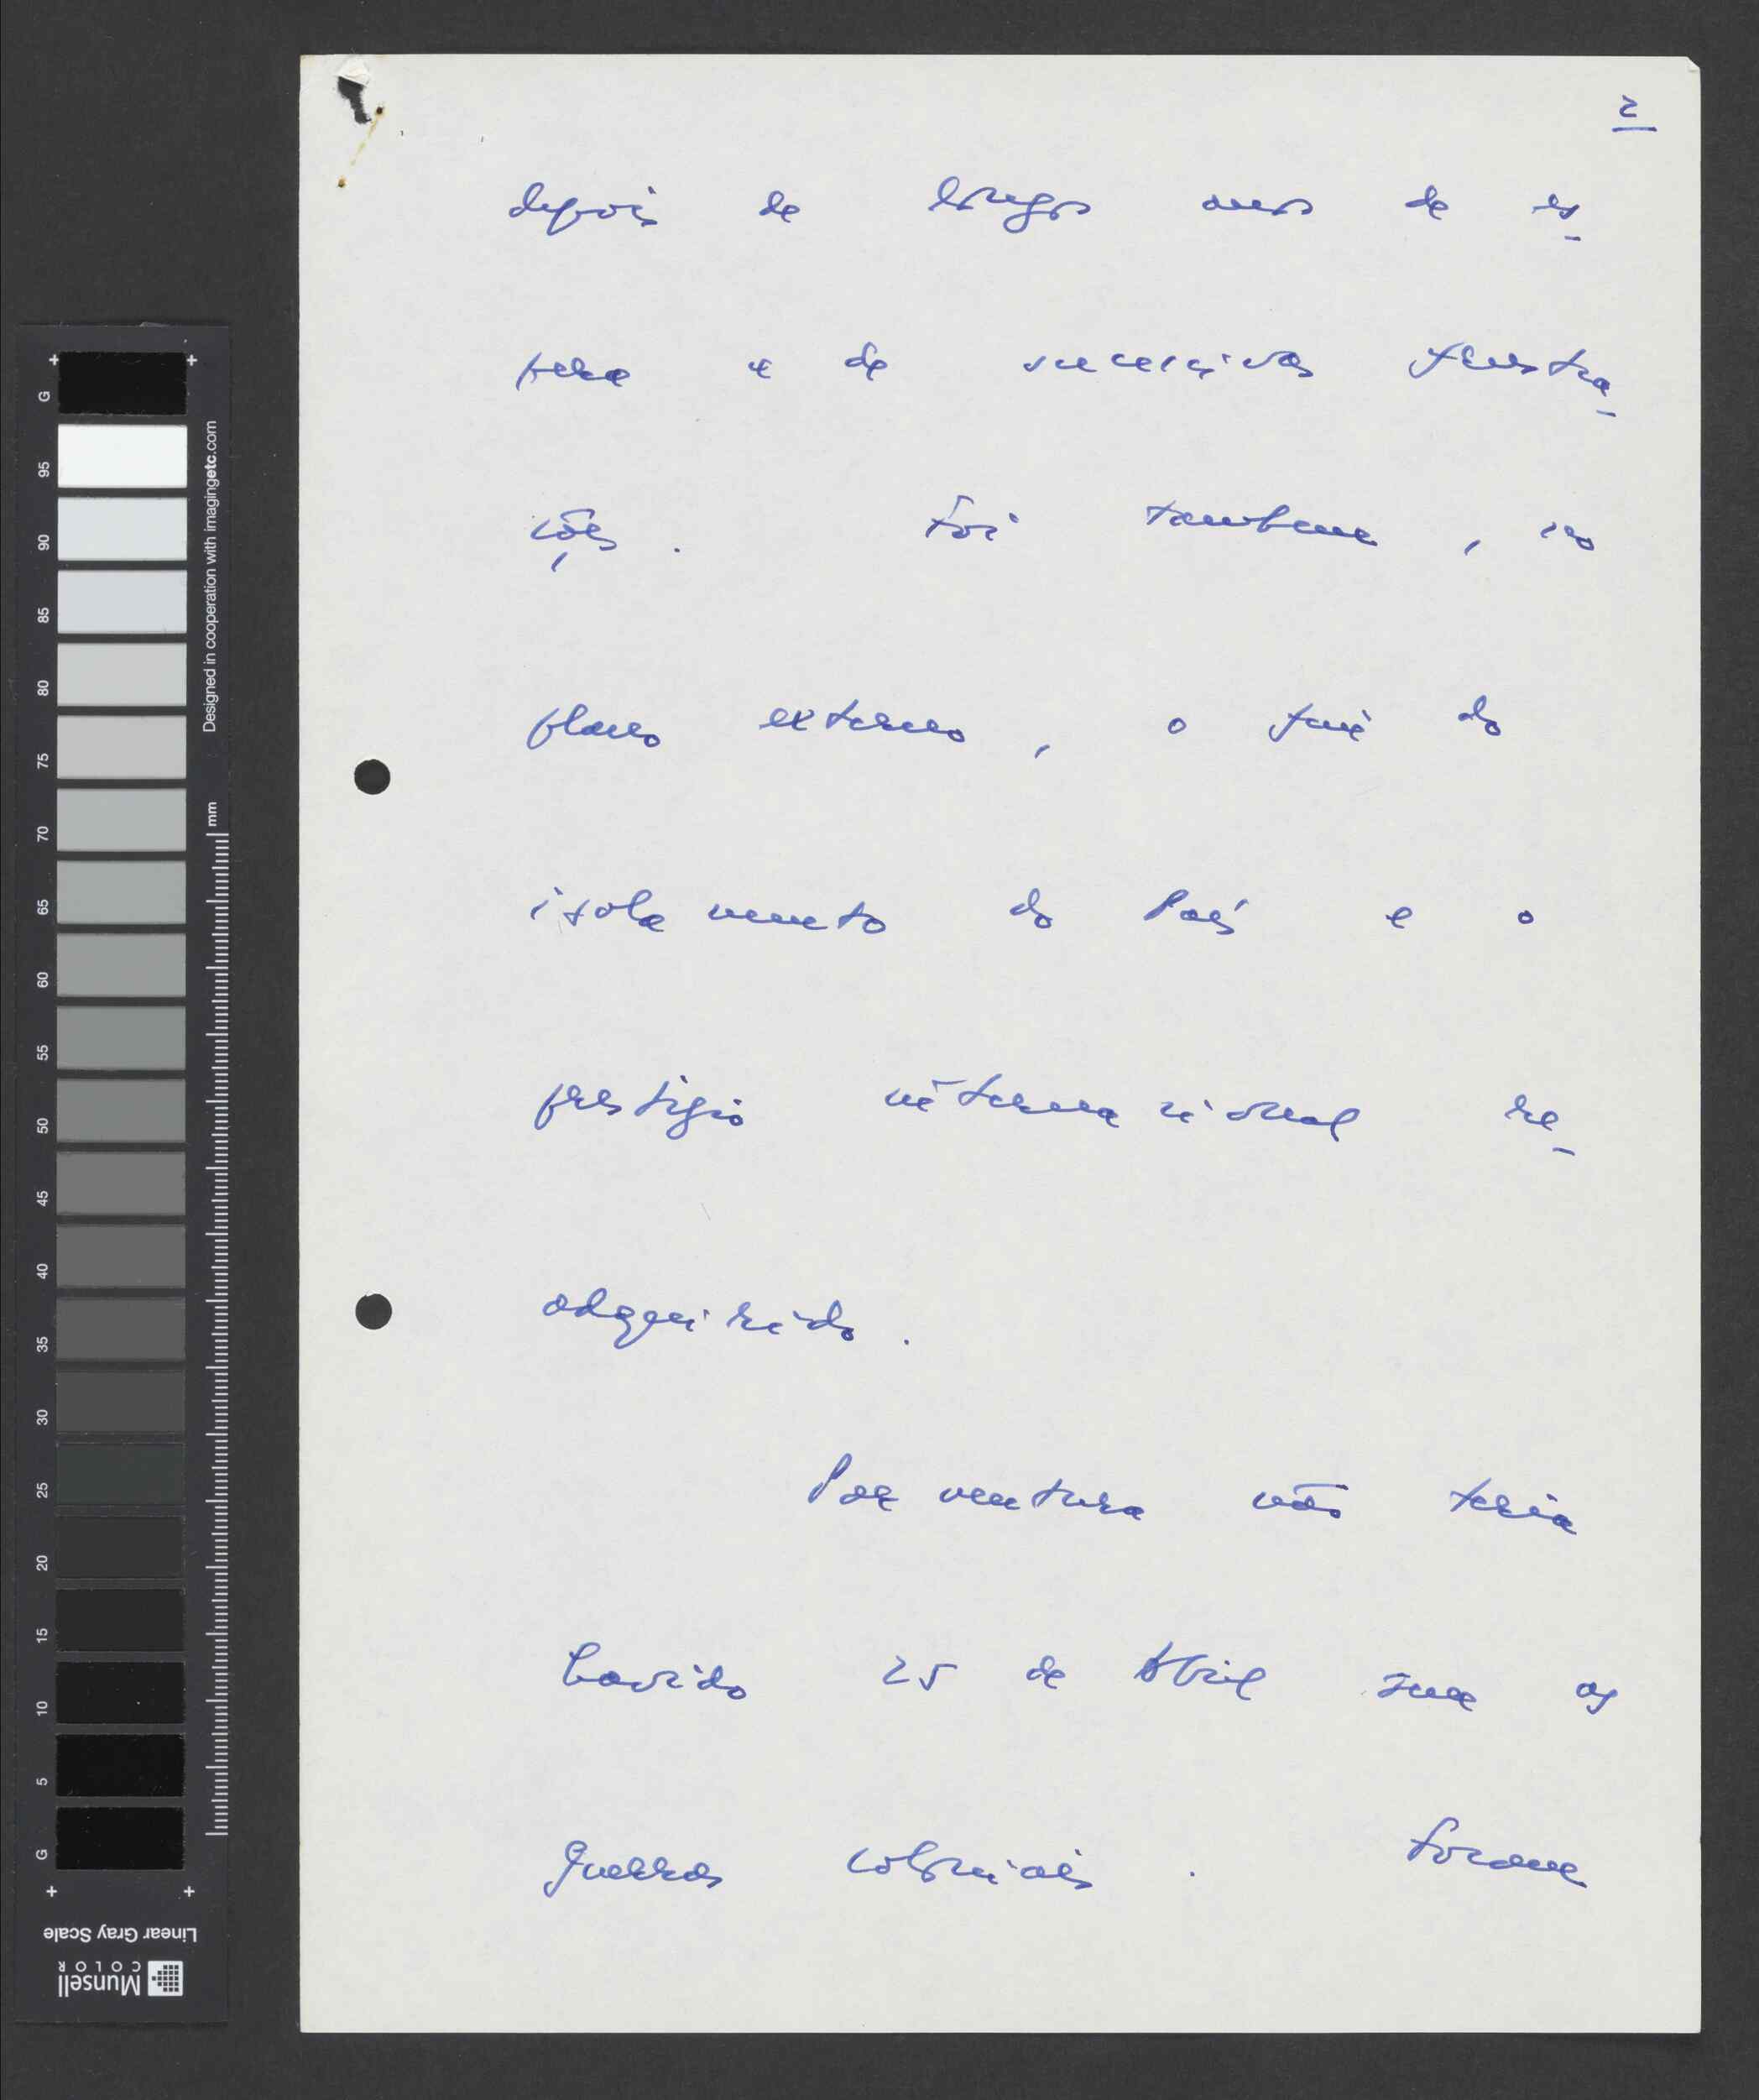 2
depois de longos anos de es-
pera e de sucessivas frustra-
ções. Foi tambem, no
plano externo, o fim do
isolamento do País e o
prestigio internacional re-
adquirido.
Porventura não teria
havido 25 de Abril sem as
guerras coloniais. Foram
G
95
90
85
80
75
70
65
60
55
50
45
40
35
30
25
20
15
10
5
G
Designed in cooperation with imagingetc.com
mm
Linear Gray Scale
Munsell
COLOR